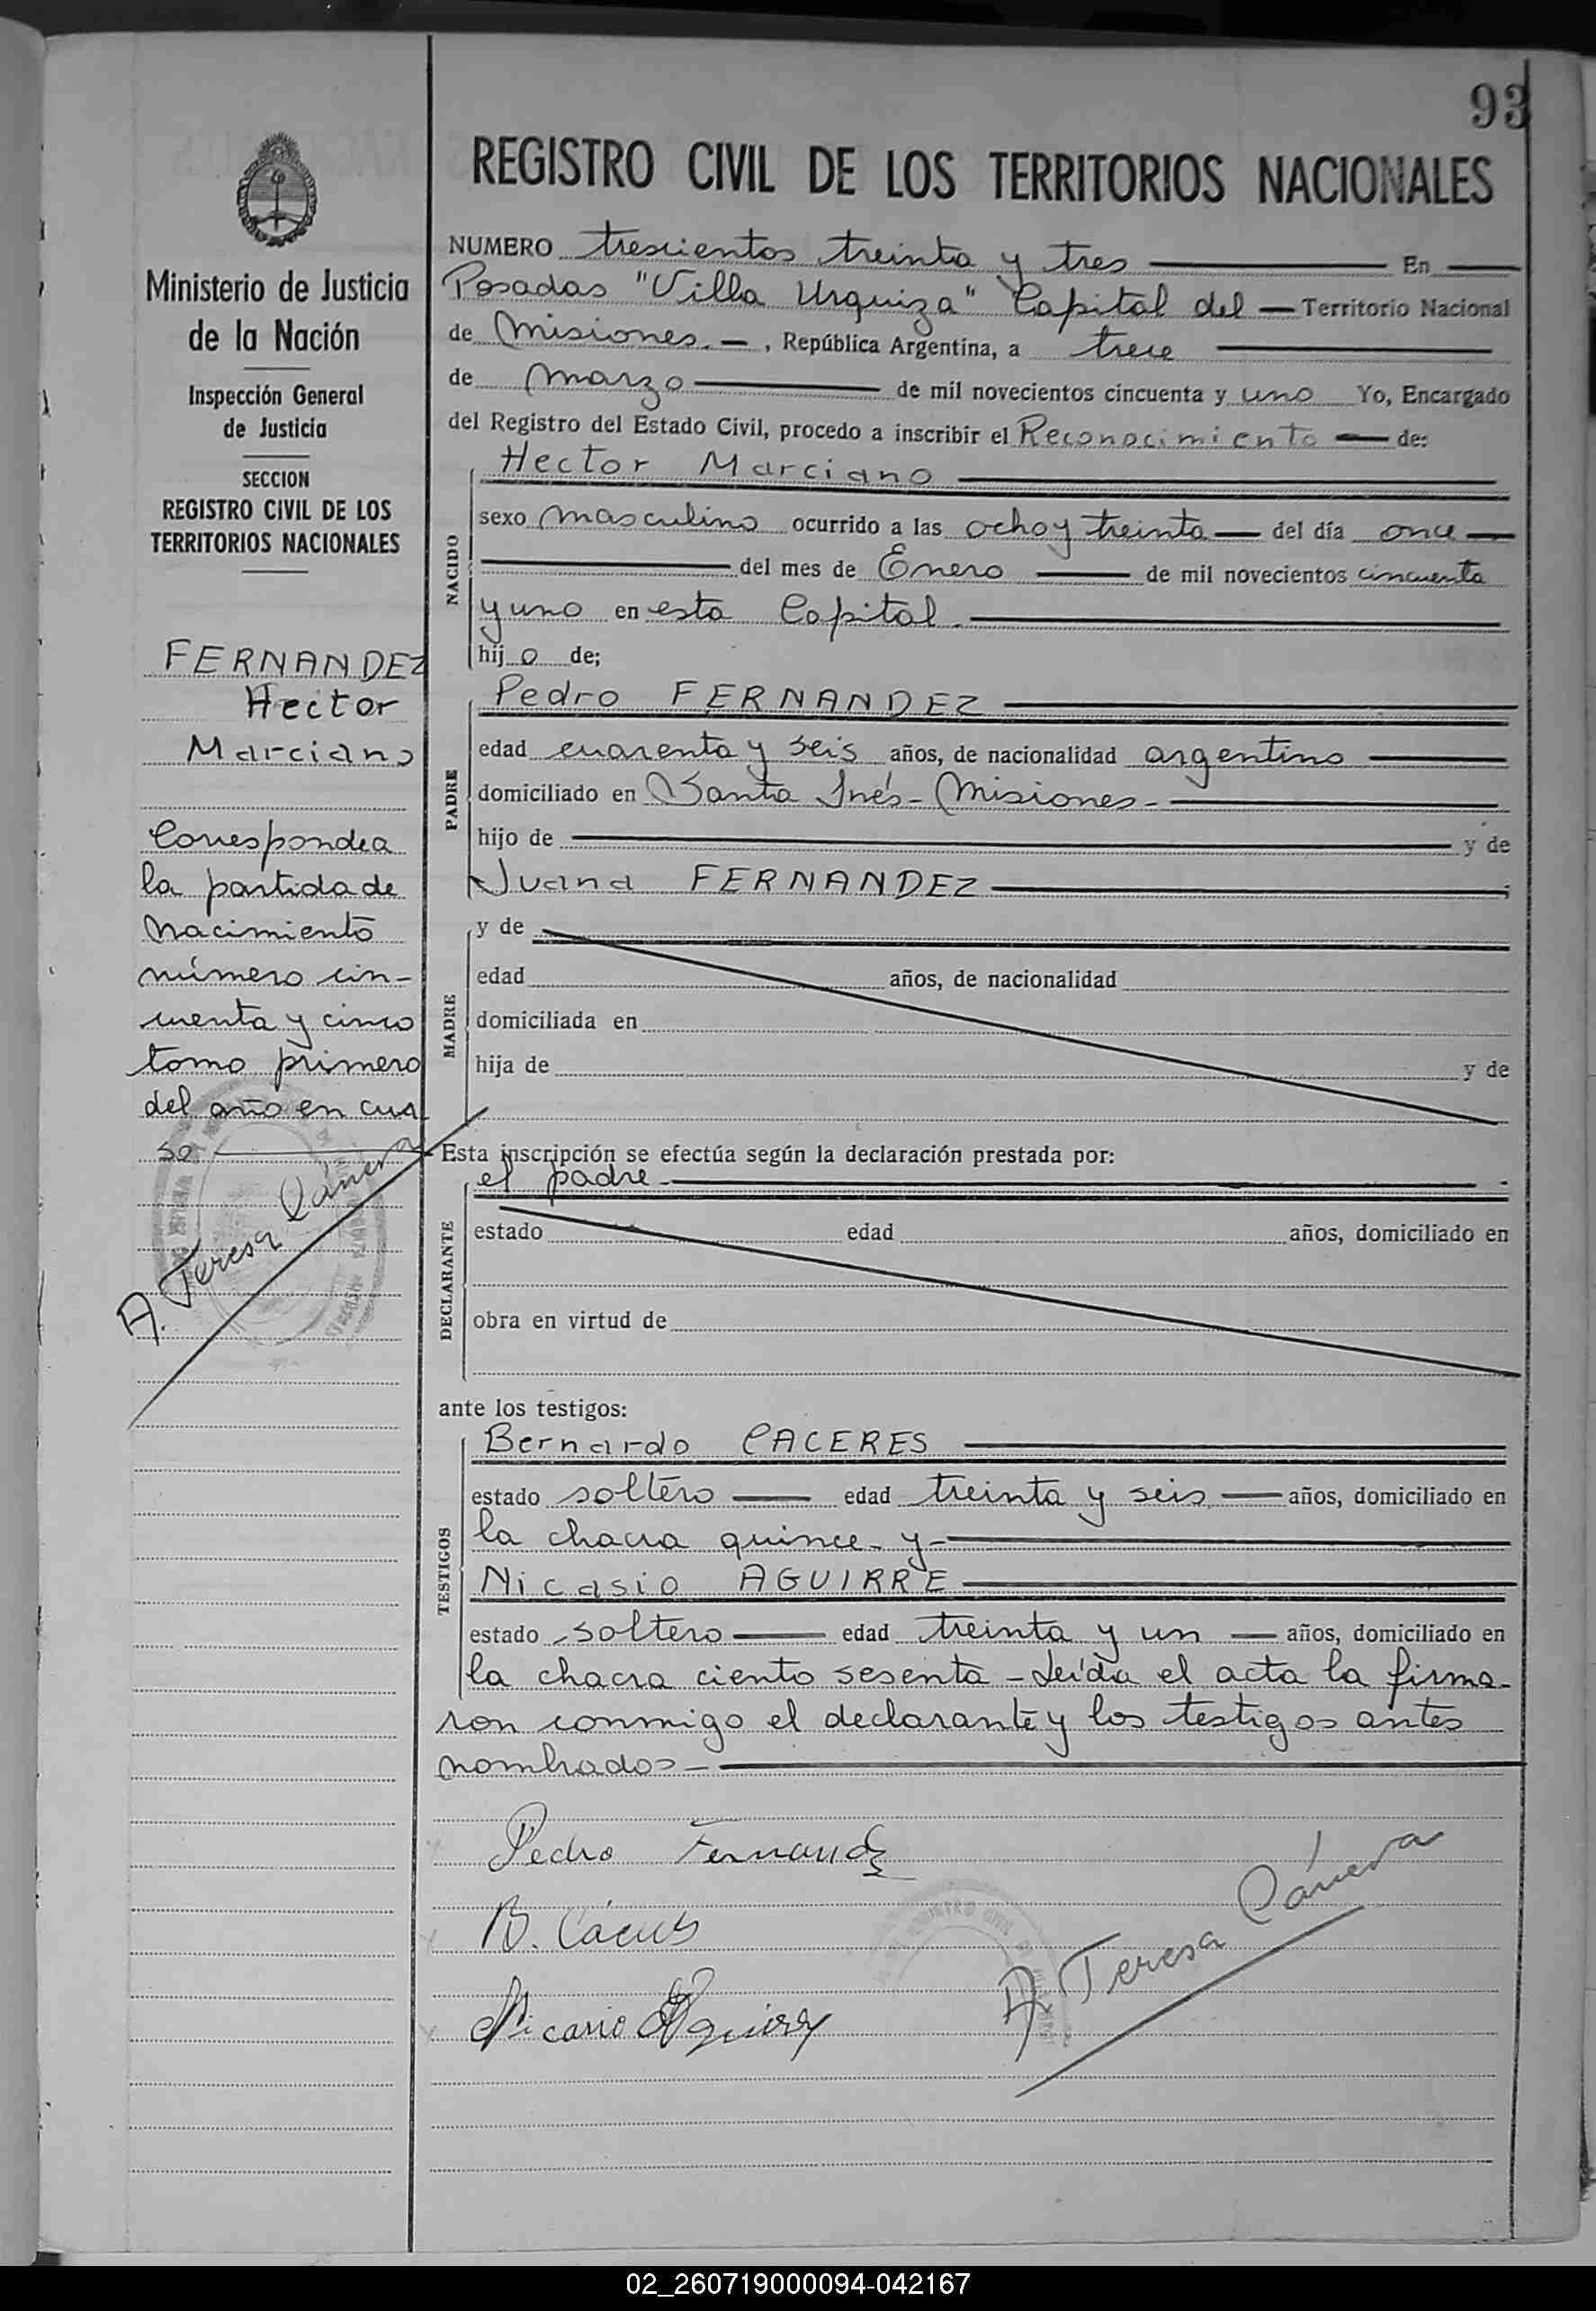 93
REGISTRO CIVIL DE LOS TERRITORIOS NACIONALES
Ministerio de Justicia
de la Nación
Inspección General
de Justicia
SECCION
REGISTRO CIVIL DE LOS
TERRITORIOS NACIONALES
FERNANDEZ
Hector
Marciano
Corresponde a
la partida de
nacimiento
número cin-
cuenta y cinco
tomo primero
del año en cur
so
A. Teresa Cánera
NUMERO trescientos treinta y tres En
Posadas "Villa Urquiza" Capital del Territorio Nacional
de Misiones.-, República Argentina, a trece
de marzo de mil novecientos cincuenta y uno Yo, Encargado
del Registro del Estado Civil, procedo a inscribir el Reconocimiento de:
NACIDO
Hector Marciano
sexo masculino ocurrido a las ocho y treinta del día once
del mes de Enero de mil novecientos cincuenta
y uno en esta Capital.
hijo de;
PADRE
Pedro FERNANDEZ
edad cuarenta y seis años, de nacionalidad argentino
domiciliado en Santa Inés - Misiones-
hijo de y de
Juana FERNANDEZ ;
MADRE
y de
edad años, de nacionalidad
domiciliada en
hija de y de
Esta inscripción se efectúa según la declaración prestada por:
DECLARANTE
el padre-
estado edad años, domiciliado en
obra en virtud de
ante los testigos:
TESTIGOS
Bernardo CACERES
estado soltero edad treinta y seis años, domiciliado en
la chacra quince- y-
Nicasio AGUIRRE
estado soltero edad treinta y un años, domiciliado en
la chacra ciento sesenta - Leída el acta la firma-
ron conmigo el declarante y los testigos antes
nombrados-
Pedro Fernandez
B. Cáceres
Nicasio Aguirre
A Teresa Cánera
02_260719000094-042167